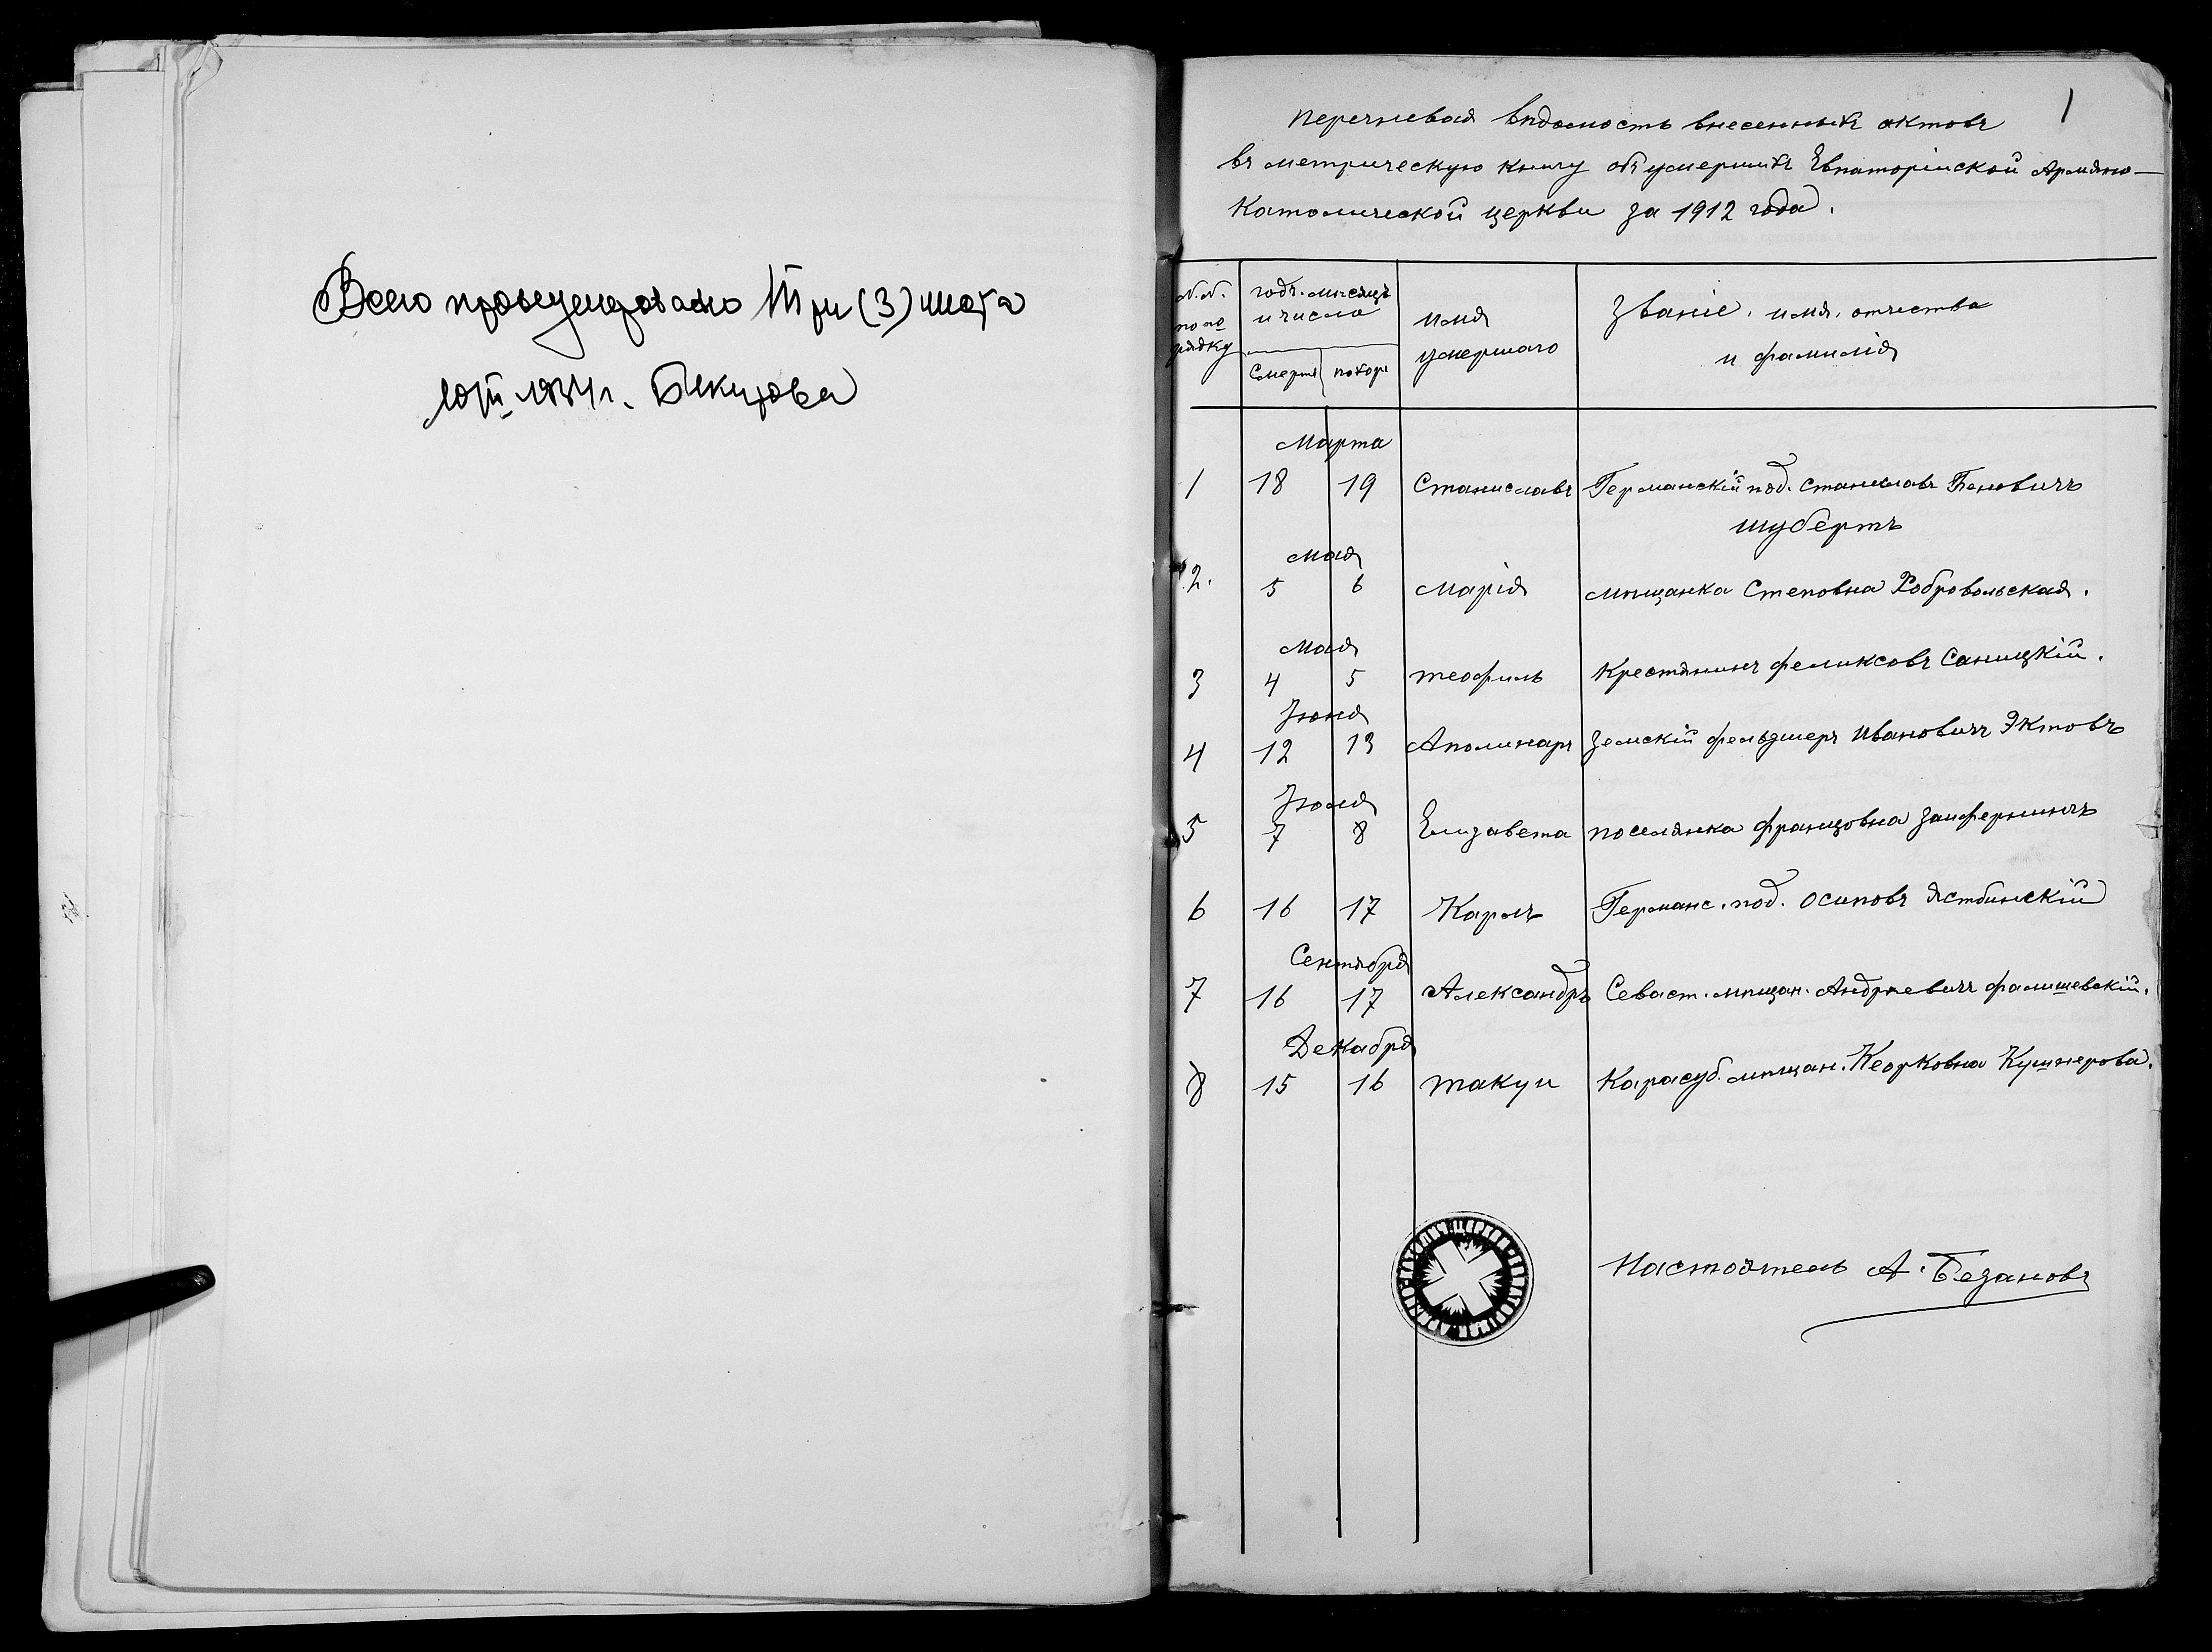 Всего пронумеровано Три (3) листа
10/III 1984 г.
1
Перечневая вѣдомость внесенныхъ актовъ
въ метрическую книгу объ умершихъ Евпаторійской Армяно-
Католической церкви за 1912 года.
N.N. по порядку годъ. мѣсяцъ и число имя умершаго Званіе. имя. отчества и фамилія
Смерти похор
Марта
1 18 19 Станиславъ Германскій под. Станиславъ Беновичъ
Шубертъ
Мая
2. 5 6 Марія мѣщанка Степовна Добровольская.
Мая
3 4 5 Теофиль Крестянинъ Феликсовъ Саницкій.
Іюня
4 12 13 Аполинаръ Земскій фельдшеръ Ивановичъ Эктовъ
Іюля
5 7 8 Елизавета поселянка Францовна
6 16 17 Карлъ Германс. под. Осиповъ Ястбинскій
Сентября
7 16 17 Александръ Севаст. мѣщан. Андреевичъ Фалишевскій.
Декабря
8 15 16 Такуи Карасуб. мѣщан. Кеорковна Кушнерова.
Настоятель А. Безановъ